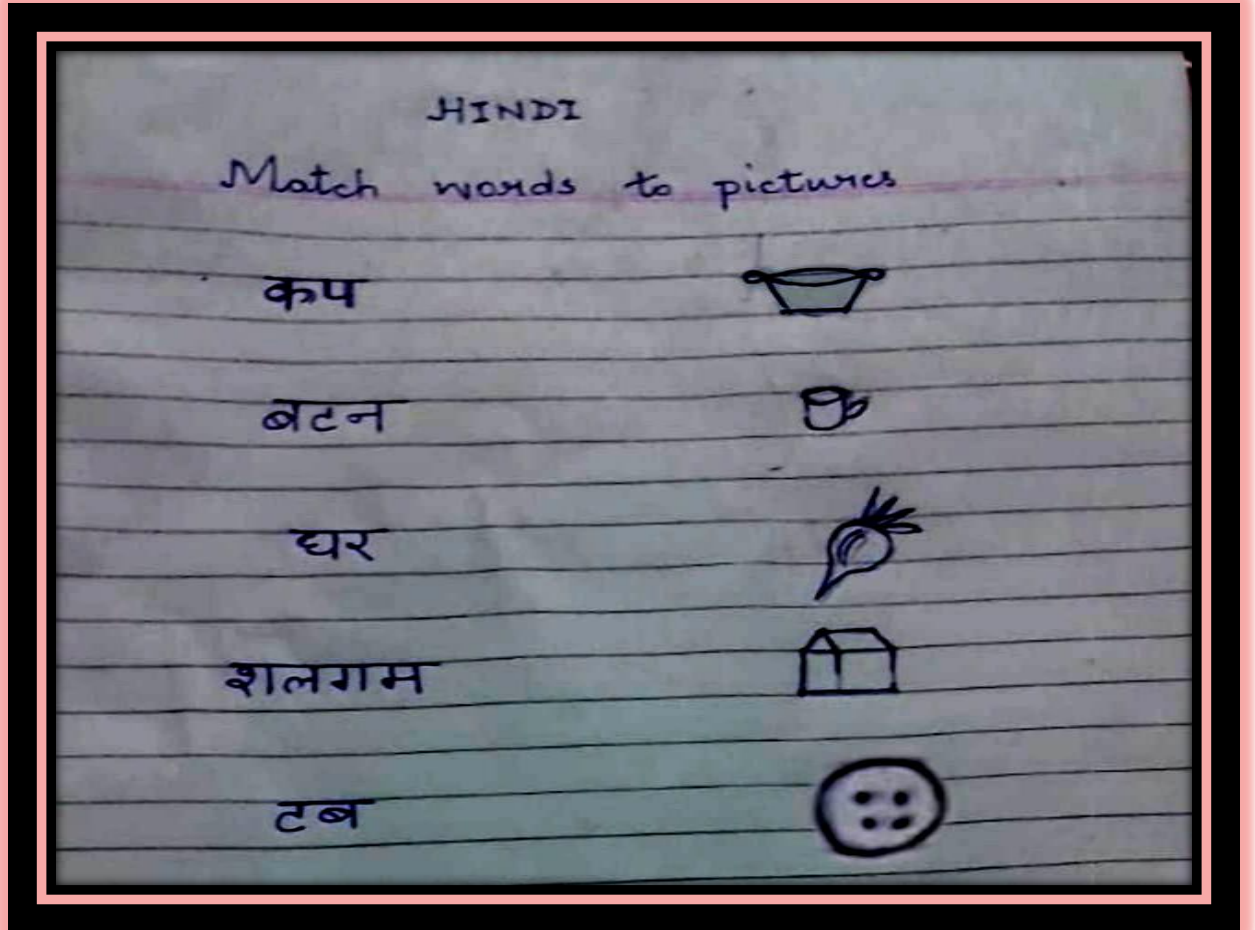 HINDI
Match words to pictures
कप
बटन
घर
शलगम
टब